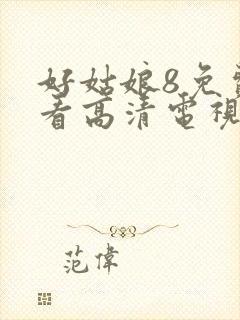 好姑娘8免費
看高清電視
范偉